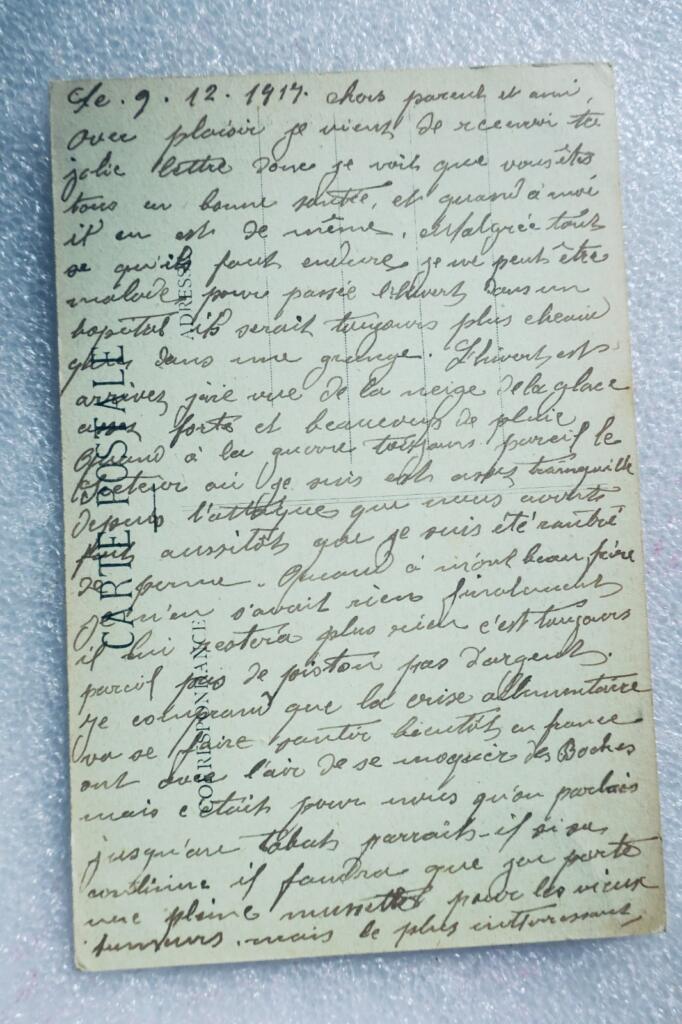 Le. 9. 12. 1917. chers parent et ami,
avec plaisir je vient de recevoir ta
jolie lettre donc je voit que vous êtes
tous en bonne santée, et quand à moi
il en est de même. Malgrée tout
se qu'ils faut endure je ne peut être
malade pour passée l'hivert dans un
hopital ils serait toujours plus
que dans une grange. L'hivert est
arrivez j'aie vue de la neige de la glace
asses forte et beaucoup de pluie
Quand à la guerre toujours pareil le
secteur où je suis est asses tranquille
depuis l'attaque que nous avont
fait aussitôt que je suis été rentré
de perme. Quand à mont beau frère
je n'en s'avait rien finalement
il lui restera plus rien c'est toujours
pareil pas de piston pas d'argent.
je comprend que la crise allimentaire
va se faire sentir bientôt en france
ont avee l'air de se moquer des Boches
mais c'était pour nous qu'on parlais
jusqu'au tabat parraît-il si sa
continue il faudra que j'en porte
une pleine musette pour les vieux
fumeurs. mais le plus intterressant
CARTE POSTALE
CORRESPONDANCE
ADRESSE